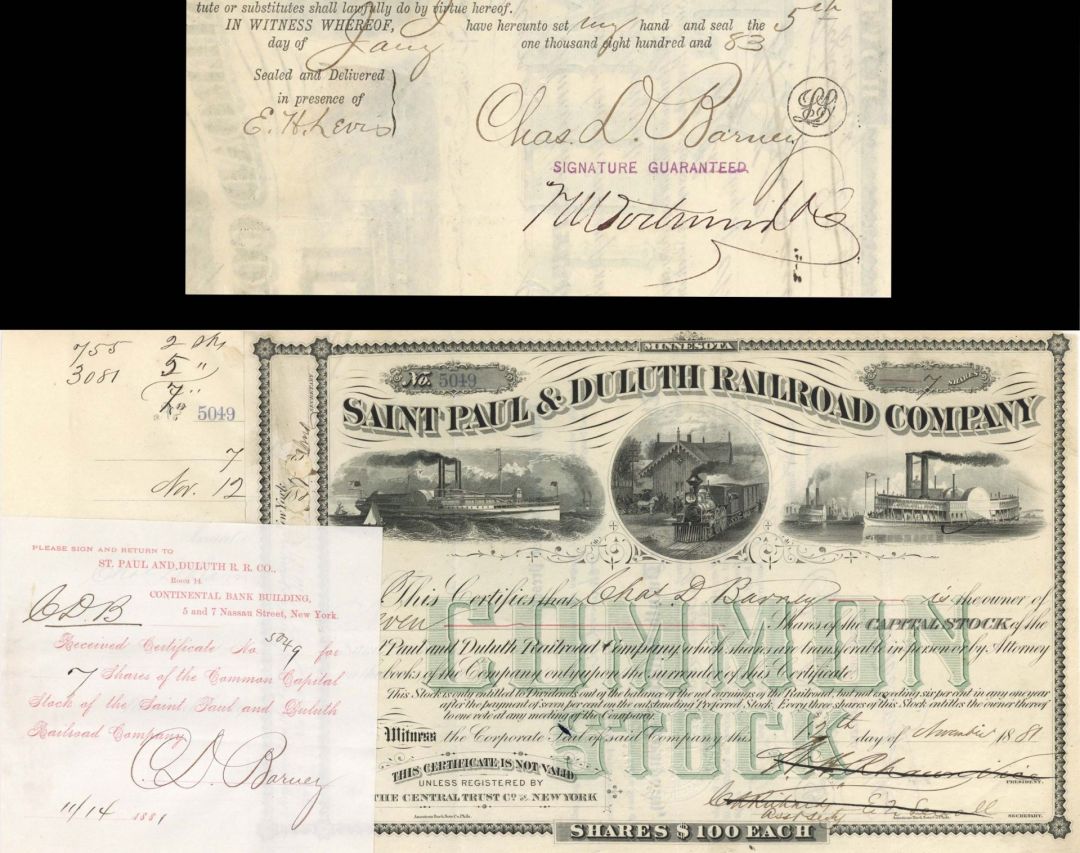 tute or substitutes shall lawfully do by virtue hereof.
IN WITNESS WHEREOF, have hereunto set my hand and seal the 5th
day of Jany one thousand eight hundred and 83
Sealed and Delivered
in presence of
E. H. Levis
Chas. D. Barney
LS
SIGNATURE GUARANTEED.
755 2 Shs
3081 5 "
7 "
5049
7
Nov. 12
PLEASE SIGN AND RETURN TO
ST. PAUL AND DULUTH R. R. CO.,
Room 14
CONTINENTAL BANK BUILDING,
5 and 7 Nassau Street, New York.
C D B
Received Certificate No. 5049 for
7 Shares of the Common Capital
Stock of the Saint Paul and Duluth
Railroad Company
C. D. Barney
11/14 1881
MINNESOTA
No. 5049
7 SHARES
SAINT PAUL & DULUTH RAILROAD COMPANY
This Certifies that Chas D Barney is the owner of
even Shares of the CAPITAL STOCK of the
Paul and Duluth Railroad Company, which shares are transferable in person or by Attorney
books of the Company only upon the surrender of this Certificate.
This Stock is only entitled to Dividends out of the balance of the net earnings of the Railroad, but not exceeding six per cent in any one year
after the payment of seven per cent on the outstanding Preferred Stock. Every three shares of this Stock entitles the owner thereof
to one vote at any meeting of the Company.
COMMON
STOCK
Witness the Corporate Seal of said Company this 12th day of November 1881
PRESIDENT.
THIS CERTIFICATE IS NOT VALID
UNLESS REGISTERED BY
THE CENTRAL TRUST CO. OF NEW YORK
Asst Secty
SECRETARY.
American Bank Note Co. Phila.
American Bank Note Co. Phila.
SHARES $100 EACH